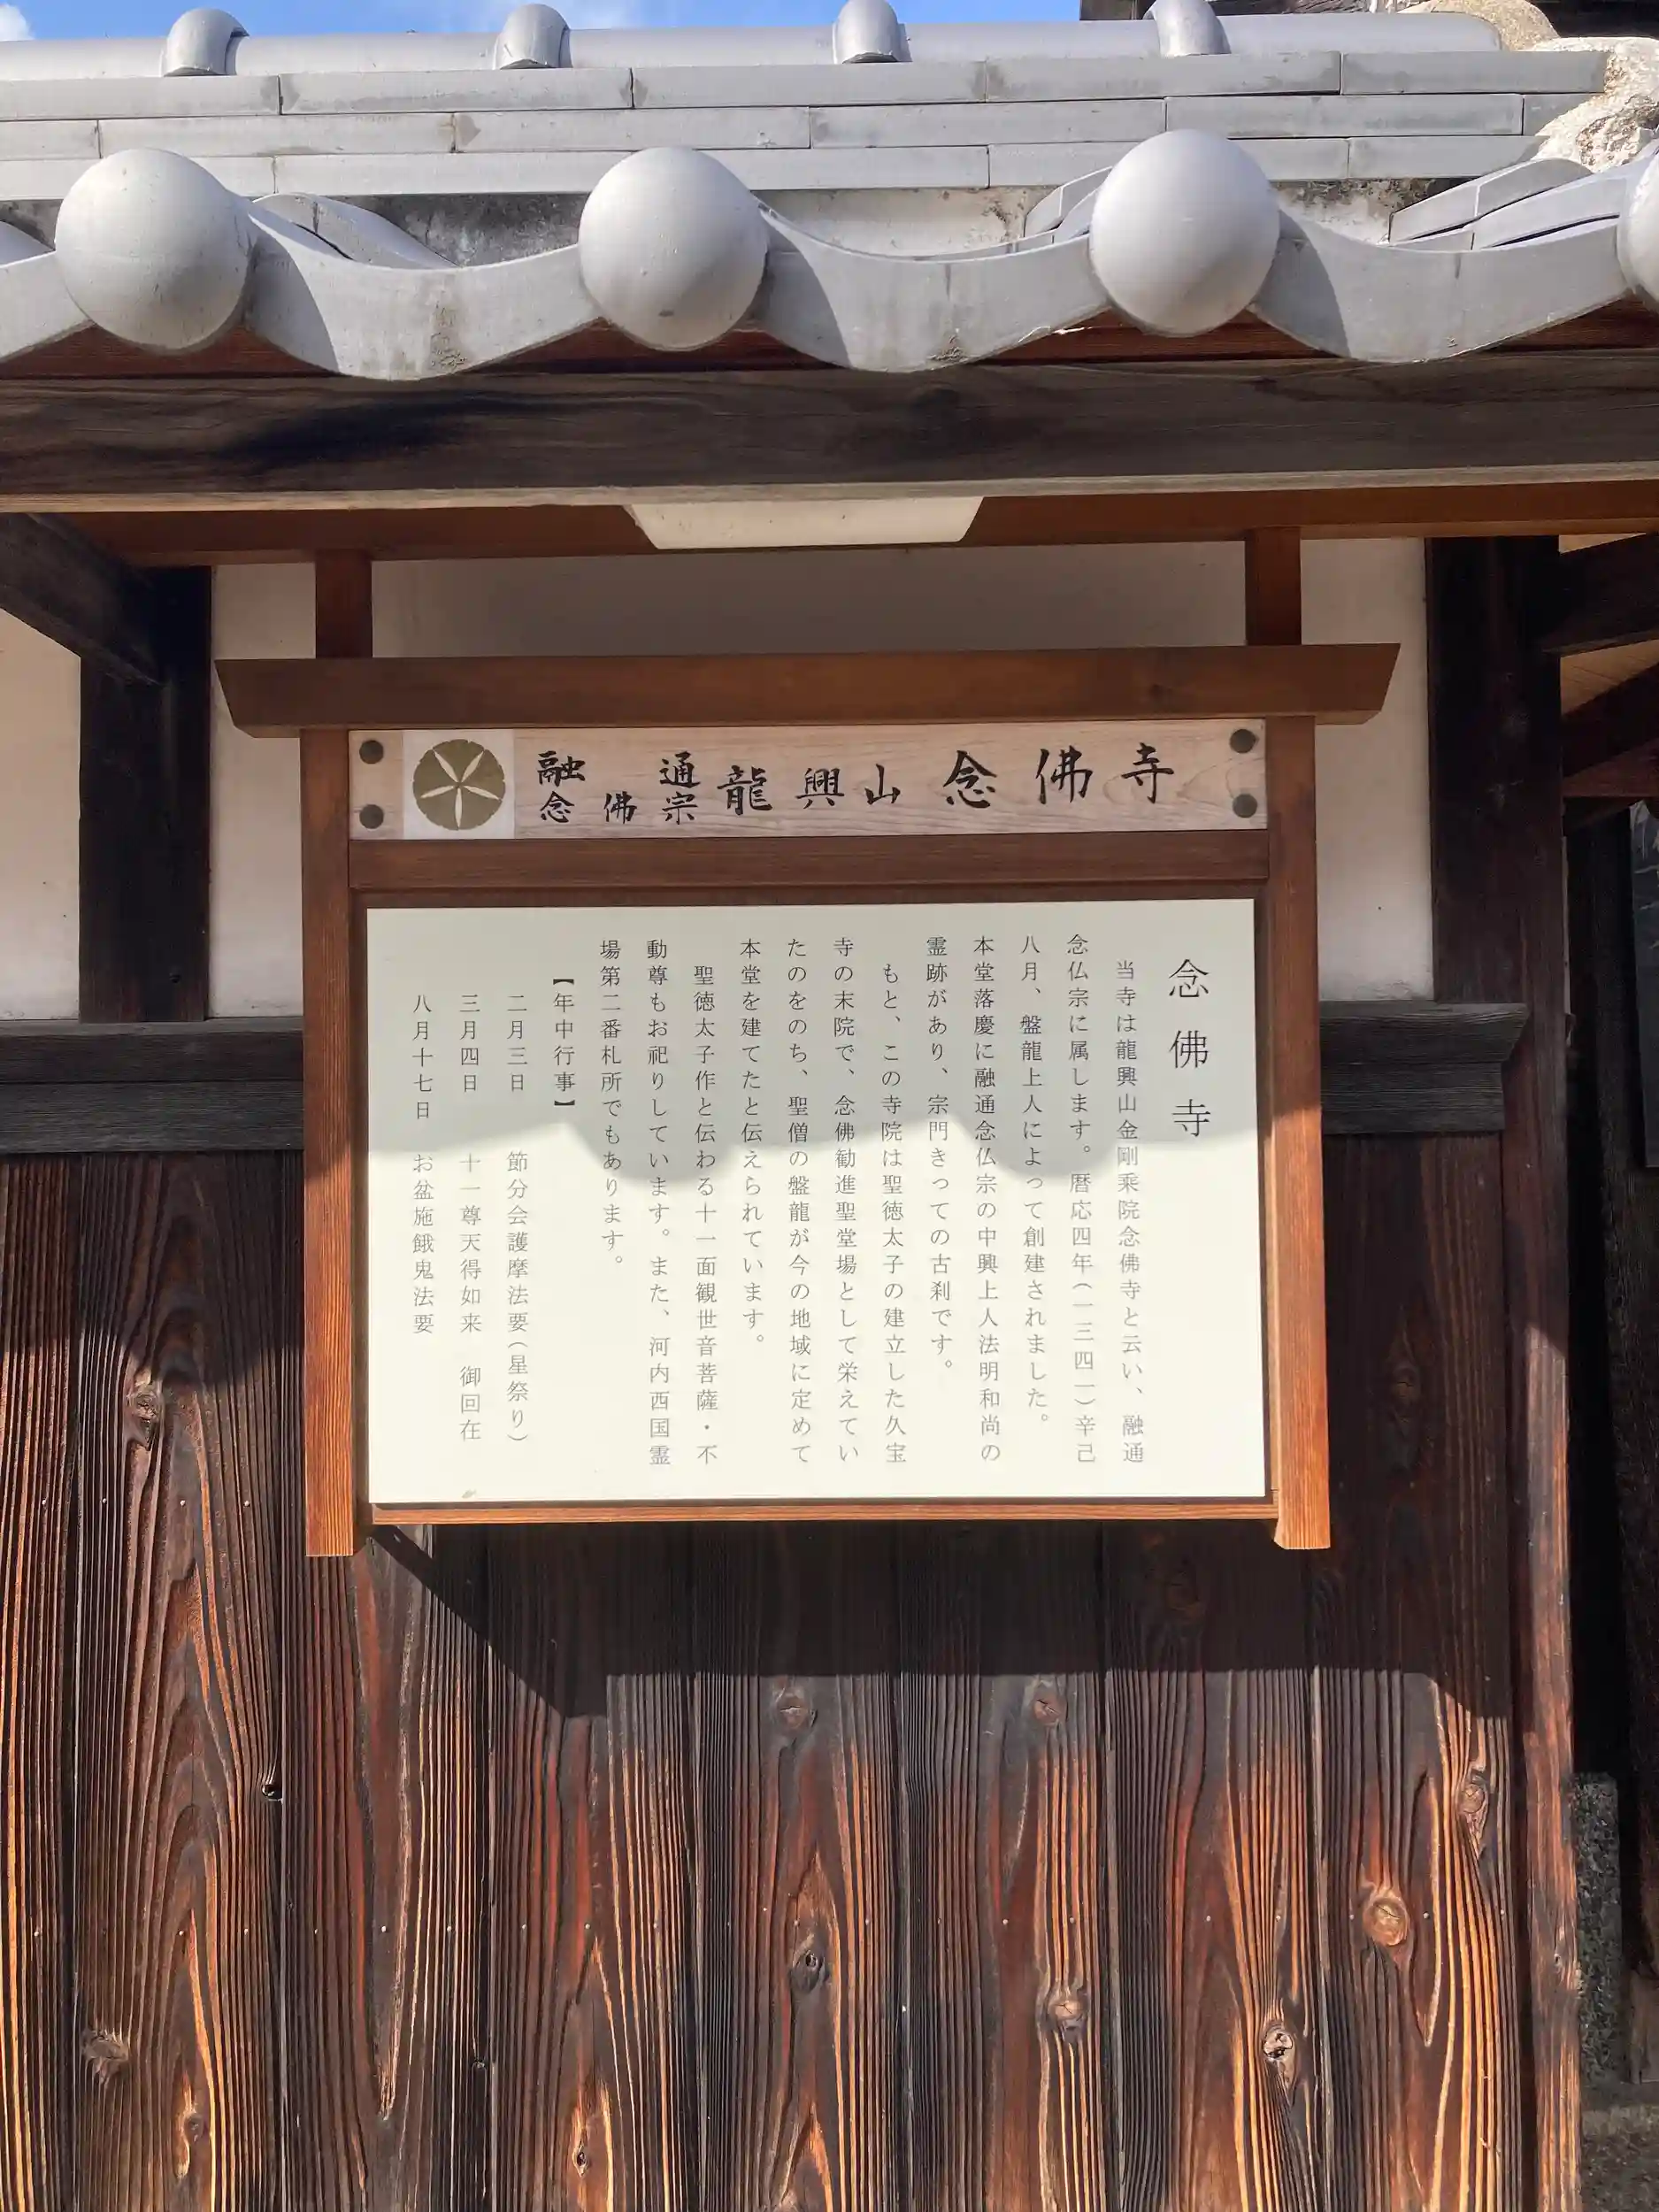 融通念佛宗 龍興山 念佛寺
念佛寺
当寺は龍興山金剛乗院念佛寺と云い、融通
念仏宗に属します。暦応四年(一三四一)辛己
八月、盤龍上人によって創建されました。
本堂落慶に融通念仏宗の中興上人法明和尚の
霊跡があり、宗門きっての古刹です。
もと、この寺院は聖徳太子の建立した久宝
寺の末院で、念佛勧進聖堂場として栄えてい
たのをのち、聖僧の盤龍が今の地域に定めて
本堂を建てたと伝えられています。
聖徳太子作と伝わる十一面観世音菩薩・不
動尊もお祀りしています。また、河内西国霊
場第二番札所でもあります。
【年中行事】
二月三日 節分会護摩法要(星祭り)
三月四日 十一尊天得如来 御回在
八月十七日 お盆施餓鬼法要